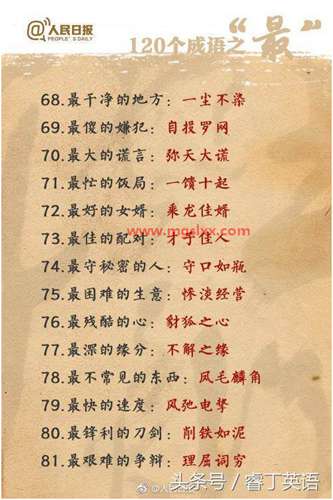 @人民日报
PEOPLE'S DAILY
120个成语之“最”
68.最干净的地方：一尘不染
69.最傻的嫌犯：自投罗网
70.最大的谎言：弥天大谎
71.最忙的饭局：一馈十起
www.mgslxx.com
72.最好的女婿：乘龙佳婿
73.最佳的配对：才子佳人
74.最守秘密的人：守口如瓶
75.最困难的生意：惨淡经营
76.最残酷的心：豺狐之心
77.最深的缘分：不解之缘
78.最不常见的东西：凤毛麟角
79.最快的速度：风驰电掣
80.最锋利的刀剑：削铁如泥
81.最艰难的争辩：理屈词穷
@人民日报
头条号 / 睿丁英语